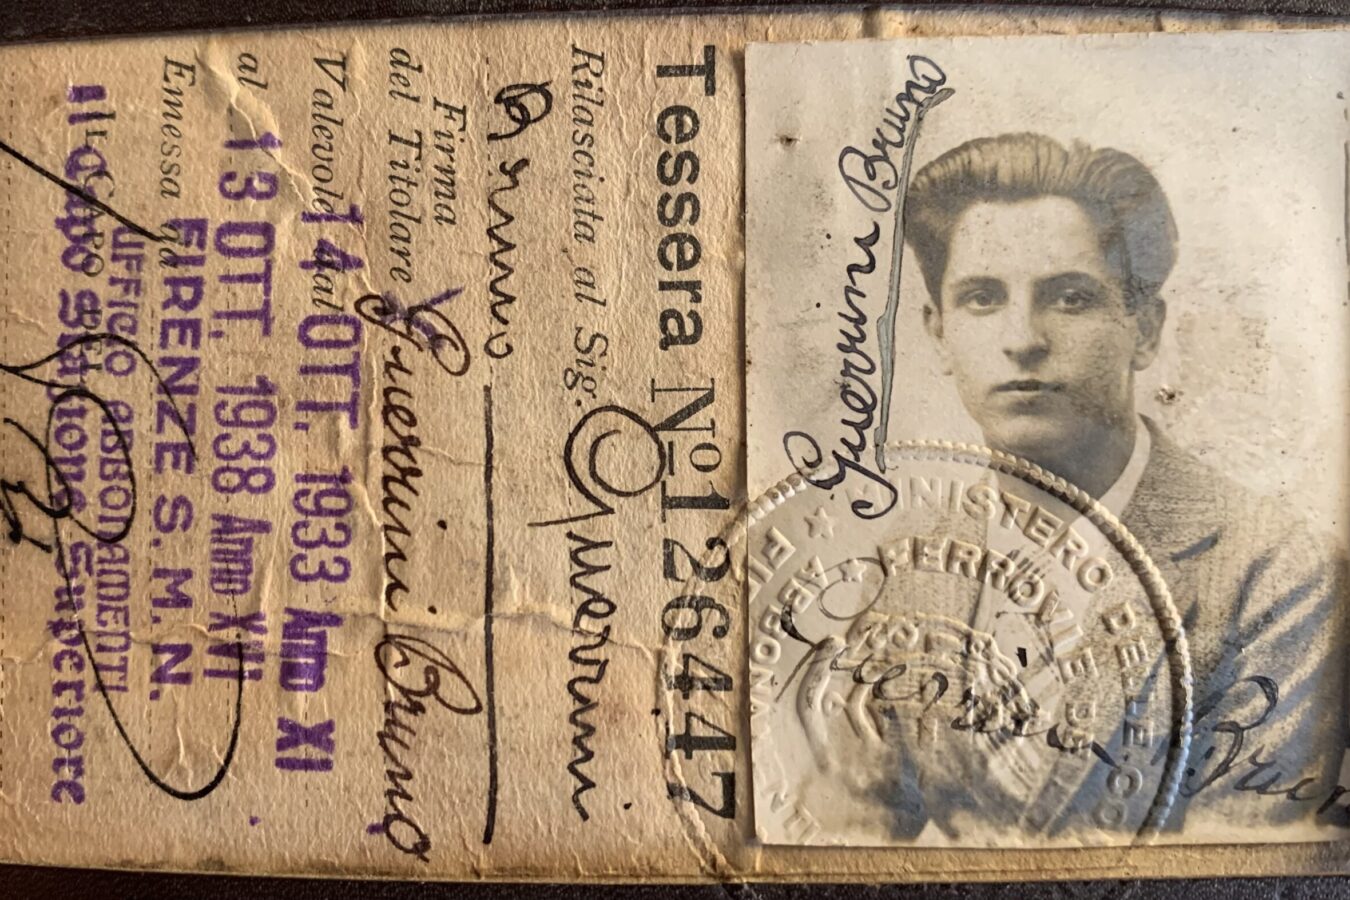 Tessera Nº 126447
Rilasciata al Sig. Guerrini
Bruno
Firma
del Titolare Guerrini Bruno
Valevole dal 14 OTT. 1933 Anno XI
al 13 OTT. 1938 Anno XVI
Emessa da FIRENZE S. M. N.
UFFICIO ABBONAMENTI
IL CAPO DEL
Il Capo Stazione Superiore
Guerrini Bruno
MINISTERO DELLE CO
FERROVIE DE
Guerrini Brun